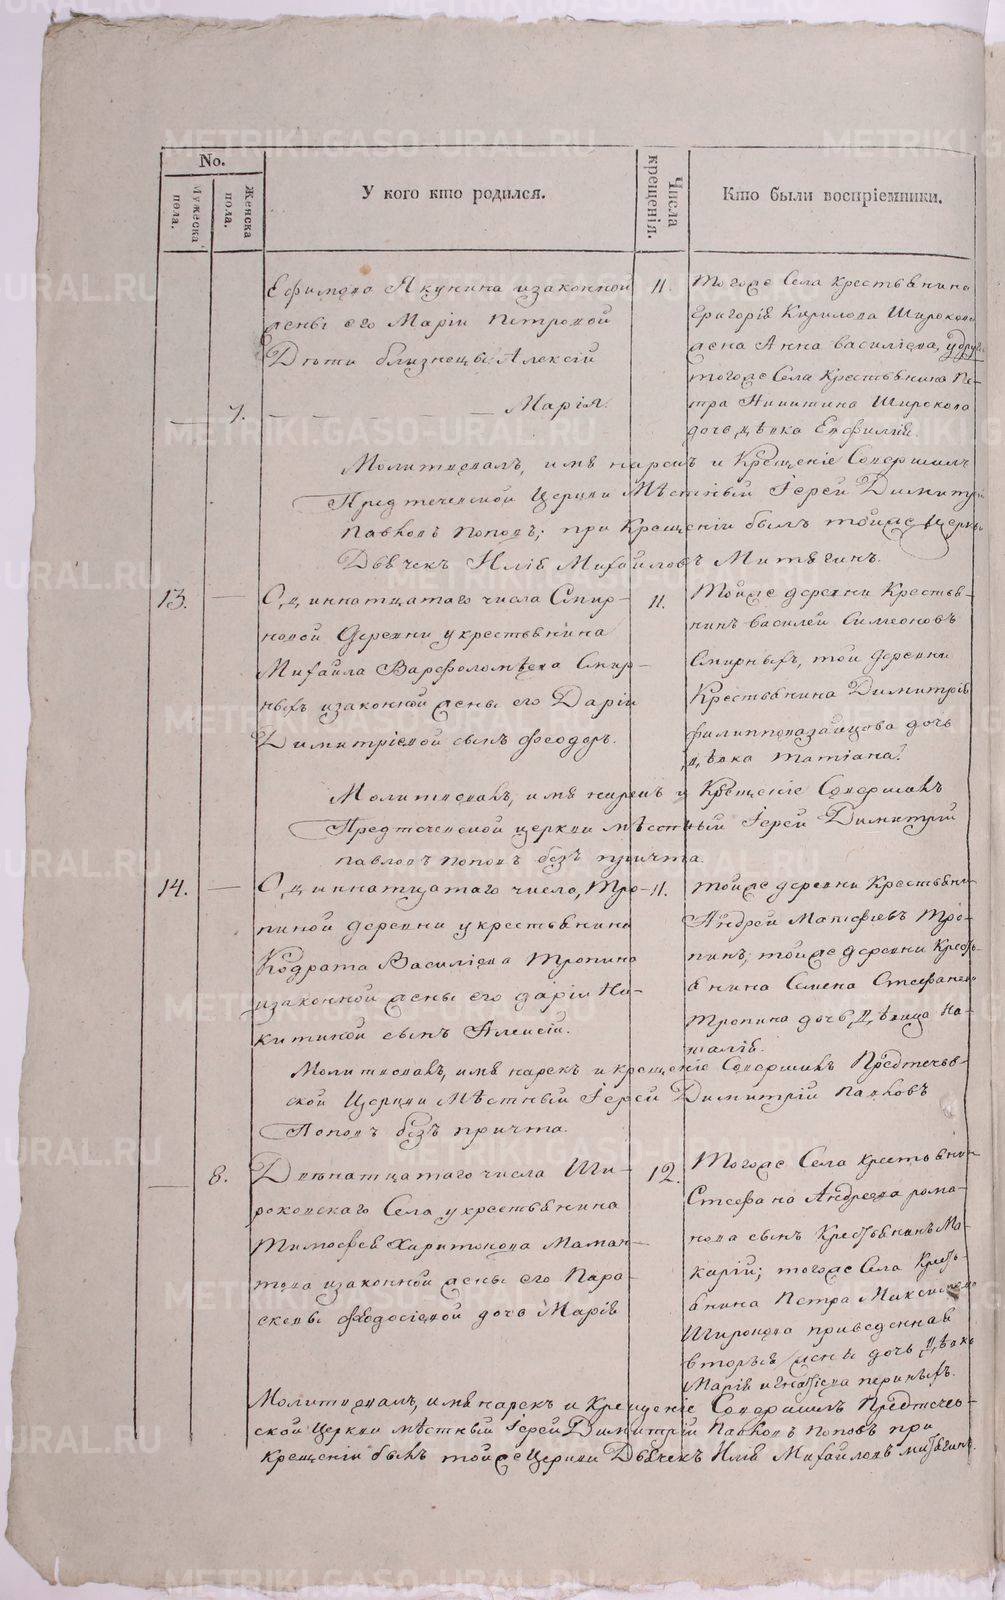 No.
Мужеска пола.
Женска пола.
У кого кто родился.
Числа крещенія.
Кто были воспріемники.
Ефимова Якунина изаконной
жены его Маріи Петровой
Дѣти близнецы Алексій
7. Марія.
11.
тогоже Села крестьянина
Григорія Кирилова Широкова
жена Анна Василіева, у друг
тогоже Села Крестьянина Пе-
тра Никитина Широкова
дочь дѣвка
Молитвовалъ, имя нарекъ и Крещеніе Совершилъ
Предтеченской Церкви Мѣстный Іерей Димитрій
Павловъ Поповъ; при Крещеніи былъ тойже Церкви
Дьячекъ Илія Михайловъ Митягинъ.
13.
Одиннатцатаго числа Смир-
новой Деревни у крестьянина
Михайла Варфоломѣева Смир-
ныхъ изаконной жены его Даріи
Димитріевой сынъ Феодоръ.
11.
Тойже деревни Крестья-
нинъ Василей Симеоновъ
Смирныхъ, той деревни
Крестьянина Димитрія
дочь
дѣвка Татіана.
Молитвовалъ, имя нарекъ и Крещеніе Совершилъ
Предтеченской церкви мѣстный Іерей Димитрій
Павловъ Поповъ безъ причта.
14.
Одиннатцатаго число, Тро-
пиной деревни у крестьянина
Кодрата Василіева Тропина
изаконной жены его Даріи Ни-
китиной сынъ Алексій.
11.
Тойже деревни Крестьяни-
Андрей Матфіевъ Тро-
пинъ; тойже деревни Кресть-
янина Семена Стефанова
Тропина дочь, Дѣвица На-
талія.
Молитвовалъ, имя нарекъ и крещеніе Совершилъ Предтечев-
ской Церкви Мѣстный Іерей Димитрій Павловъ
Поповъ безъ причта.
8.
Двѣнатцатаго числа Ши-
роковскаго Села у крестьянина
Тимофея Харитонова Маман-
това изаконной жены его Пара-
скевы Феодосіевой дочь Марія
12.
Тогоже Села крестьянин
Стефана Андреева рома-
нова сынъ Крестьянинъ Ма-
карій; тогоже Села Кресть-
янина Петра Максимова
Широкова приведенная
вторыя жены дочь Дѣвка
Марія Игнатіева
Молитвовалъ, имя нарекъ и Крещеніе Совершилъ Предтечев-
ской Церкви мѣстный Іерей Димитрій Павловъ Поповъ при
Крещеніи былъ тойже Церкви Дьячекъ Илія Михайловъ Митягинъ.
METRIKI.GASO-URAL.RU